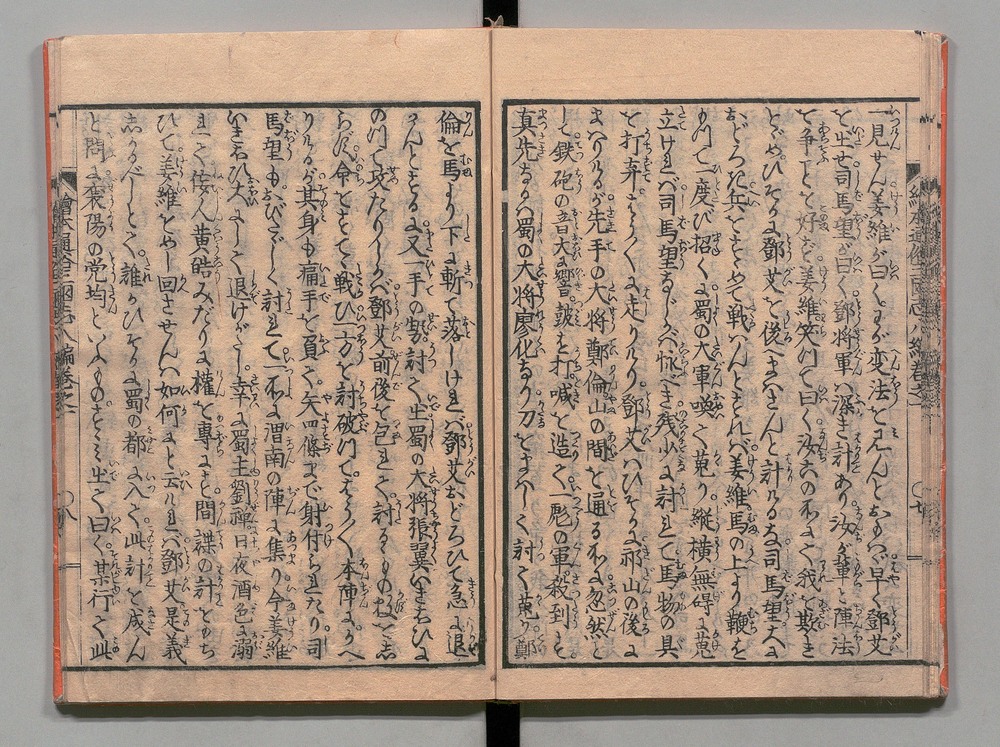 一見せん姜維が曰くわが変法を見んとおもはゞ早く鄧艾
を出せ司馬望が曰く鄧将軍ハ深き計あり汝が輩と陣法
を争ことを好ず姜維笑つて曰く汝らの
とゞめひそかに鄧艾を後にまハさんと計るなり司馬望大に
おどろき兵をすゝめて戦ハんとすれバ姜維馬の上より鞭を
もつて一度び招くに蜀の大軍喚て蒐り縦横無碍に蒐
立けれバ司馬望
を打弃てさん〴〵に走りけり鄧艾ハひそかに祁山の後に
まハりけるが先手の大将鄭倫山の間を通る所に忽然と
して鉄砲の音大に響鼓を打喊を造て一彪の軍殺到す
真先なるハ蜀の大将廖化なり刀をまハして討て蒐り鄭
倫を馬より下に斬て落しけれバ鄧艾おどろひて急に退
かんとするに又一手の勢討て出蜀の大将張翼いきおひに
のつて攻たりしかバ鄧艾前後を包れて討るゝもの数を志
らず命をすてゝ戦ひ一方を討破つてやう〳〵本陣にかへ
りけるが其身も痛手を負て矢四條まで射付られたり司
馬望もおびたゞしく討れて一所に渭南の陣に集り今姜維
いきおひ大にして退けがたし幸に蜀主劉禅日夜酒色に溺
れて佞人黄皓みだりに權を専にす間諜の計をもち
ひて姜維をよび回させんハ如何にと云けれバ鄧艾是義
志かるべしとて誰かひそかに蜀の都に入て此計を成ん
と問に襄陽の党均といふものすゝミ出て曰く某行て此
繪本通俗三國志八編巻之一
〇七
繪本通俗三國志八編巻之一
〇八